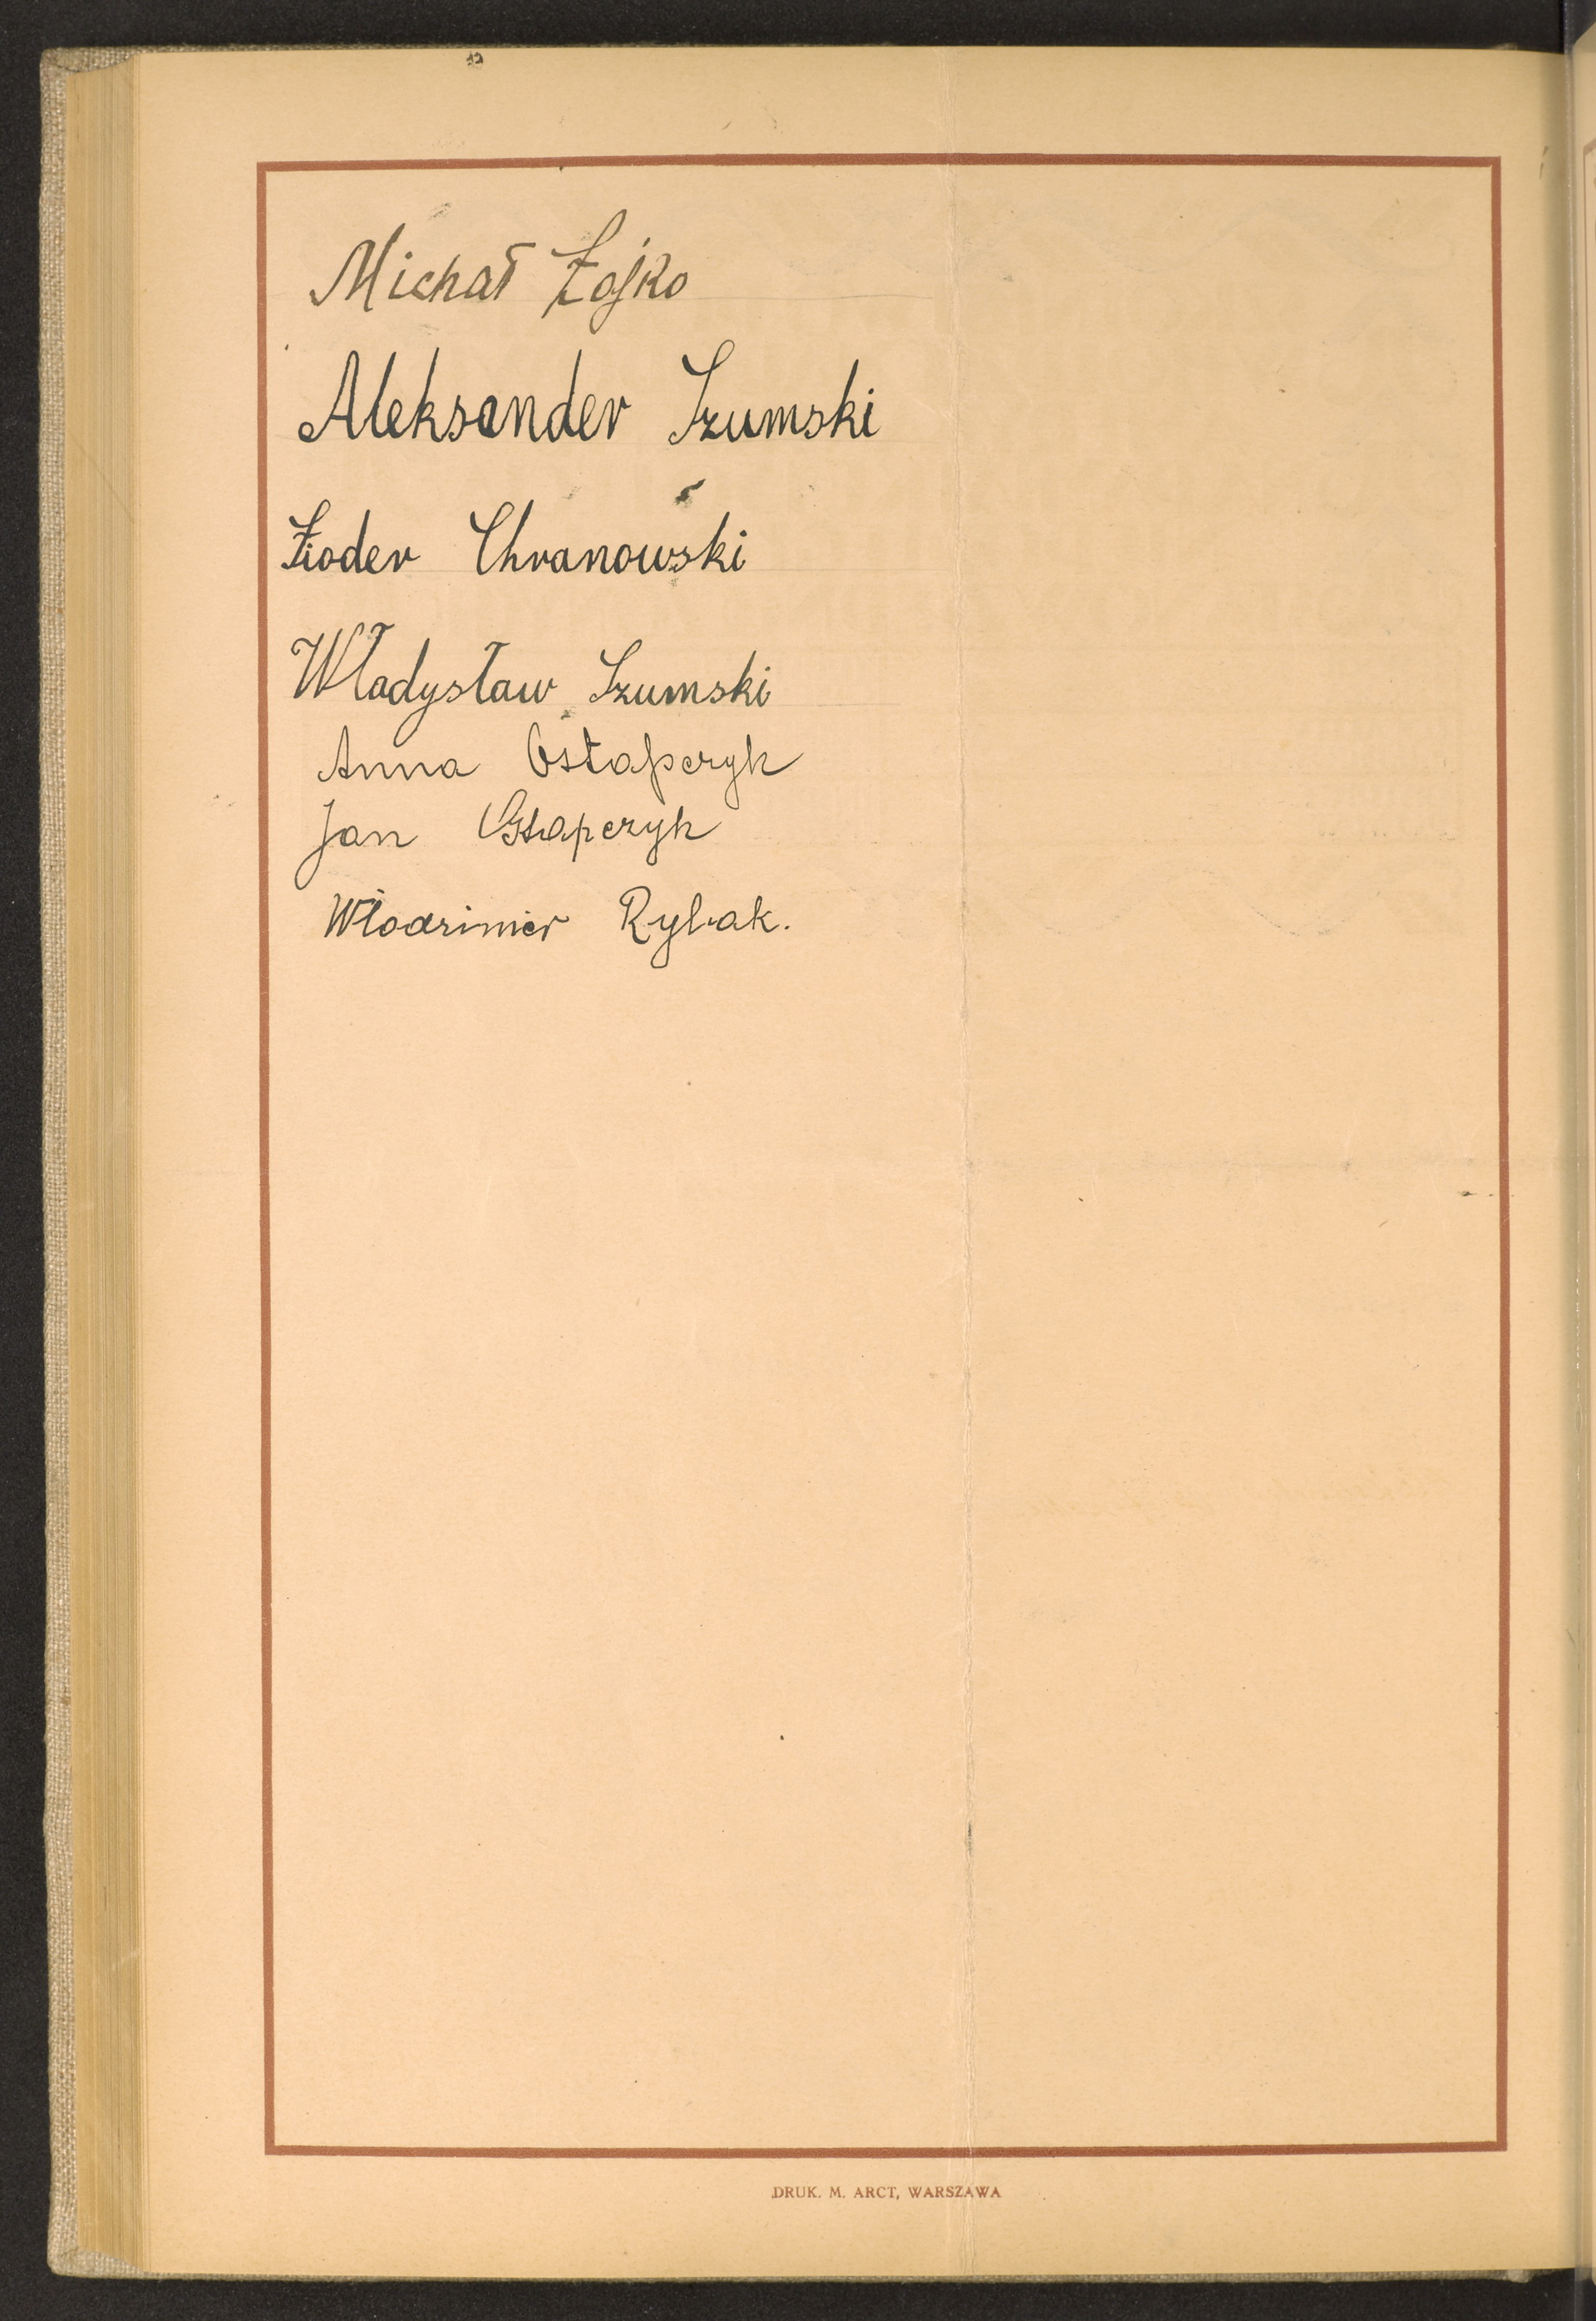 Michał Zojko
Aleksander Szumski
Fioder Chranowski
Władysław Szumski
Anna Ostapczyk
Jan Ostapczyk
Włodzimier Rybak.
DRUK. M. ARCT, WARSZAWA